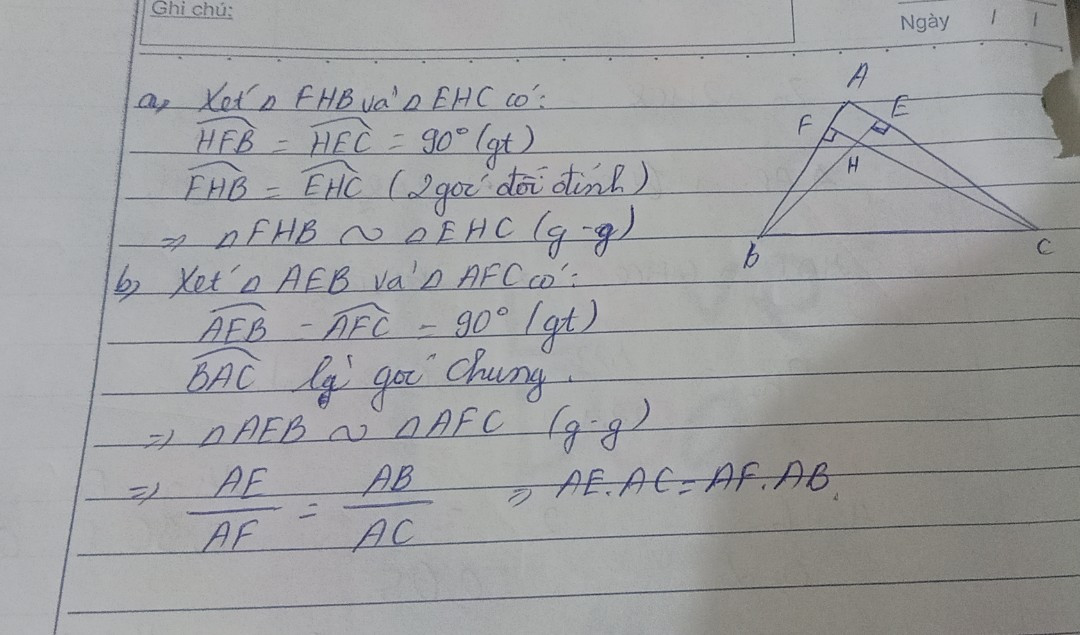 Ghi chú:
Ngày / /
a, Xét △ FHB và △ EHC có:
HFB = HEC = 90° (gt)
FHB = EHC (2 góc đối đỉnh)
=> △ FHB ~ △ EHC (g-g)
b, Xét △ AEB và △ AFC có:
AEB = AFC = 90° (gt)
BAC là góc chung.
=> △ AEB ~ △ AFC (g-g)
=> AE/AF = AB/AC => AE.AC = AF.AB.
A
F
E
H
B
C